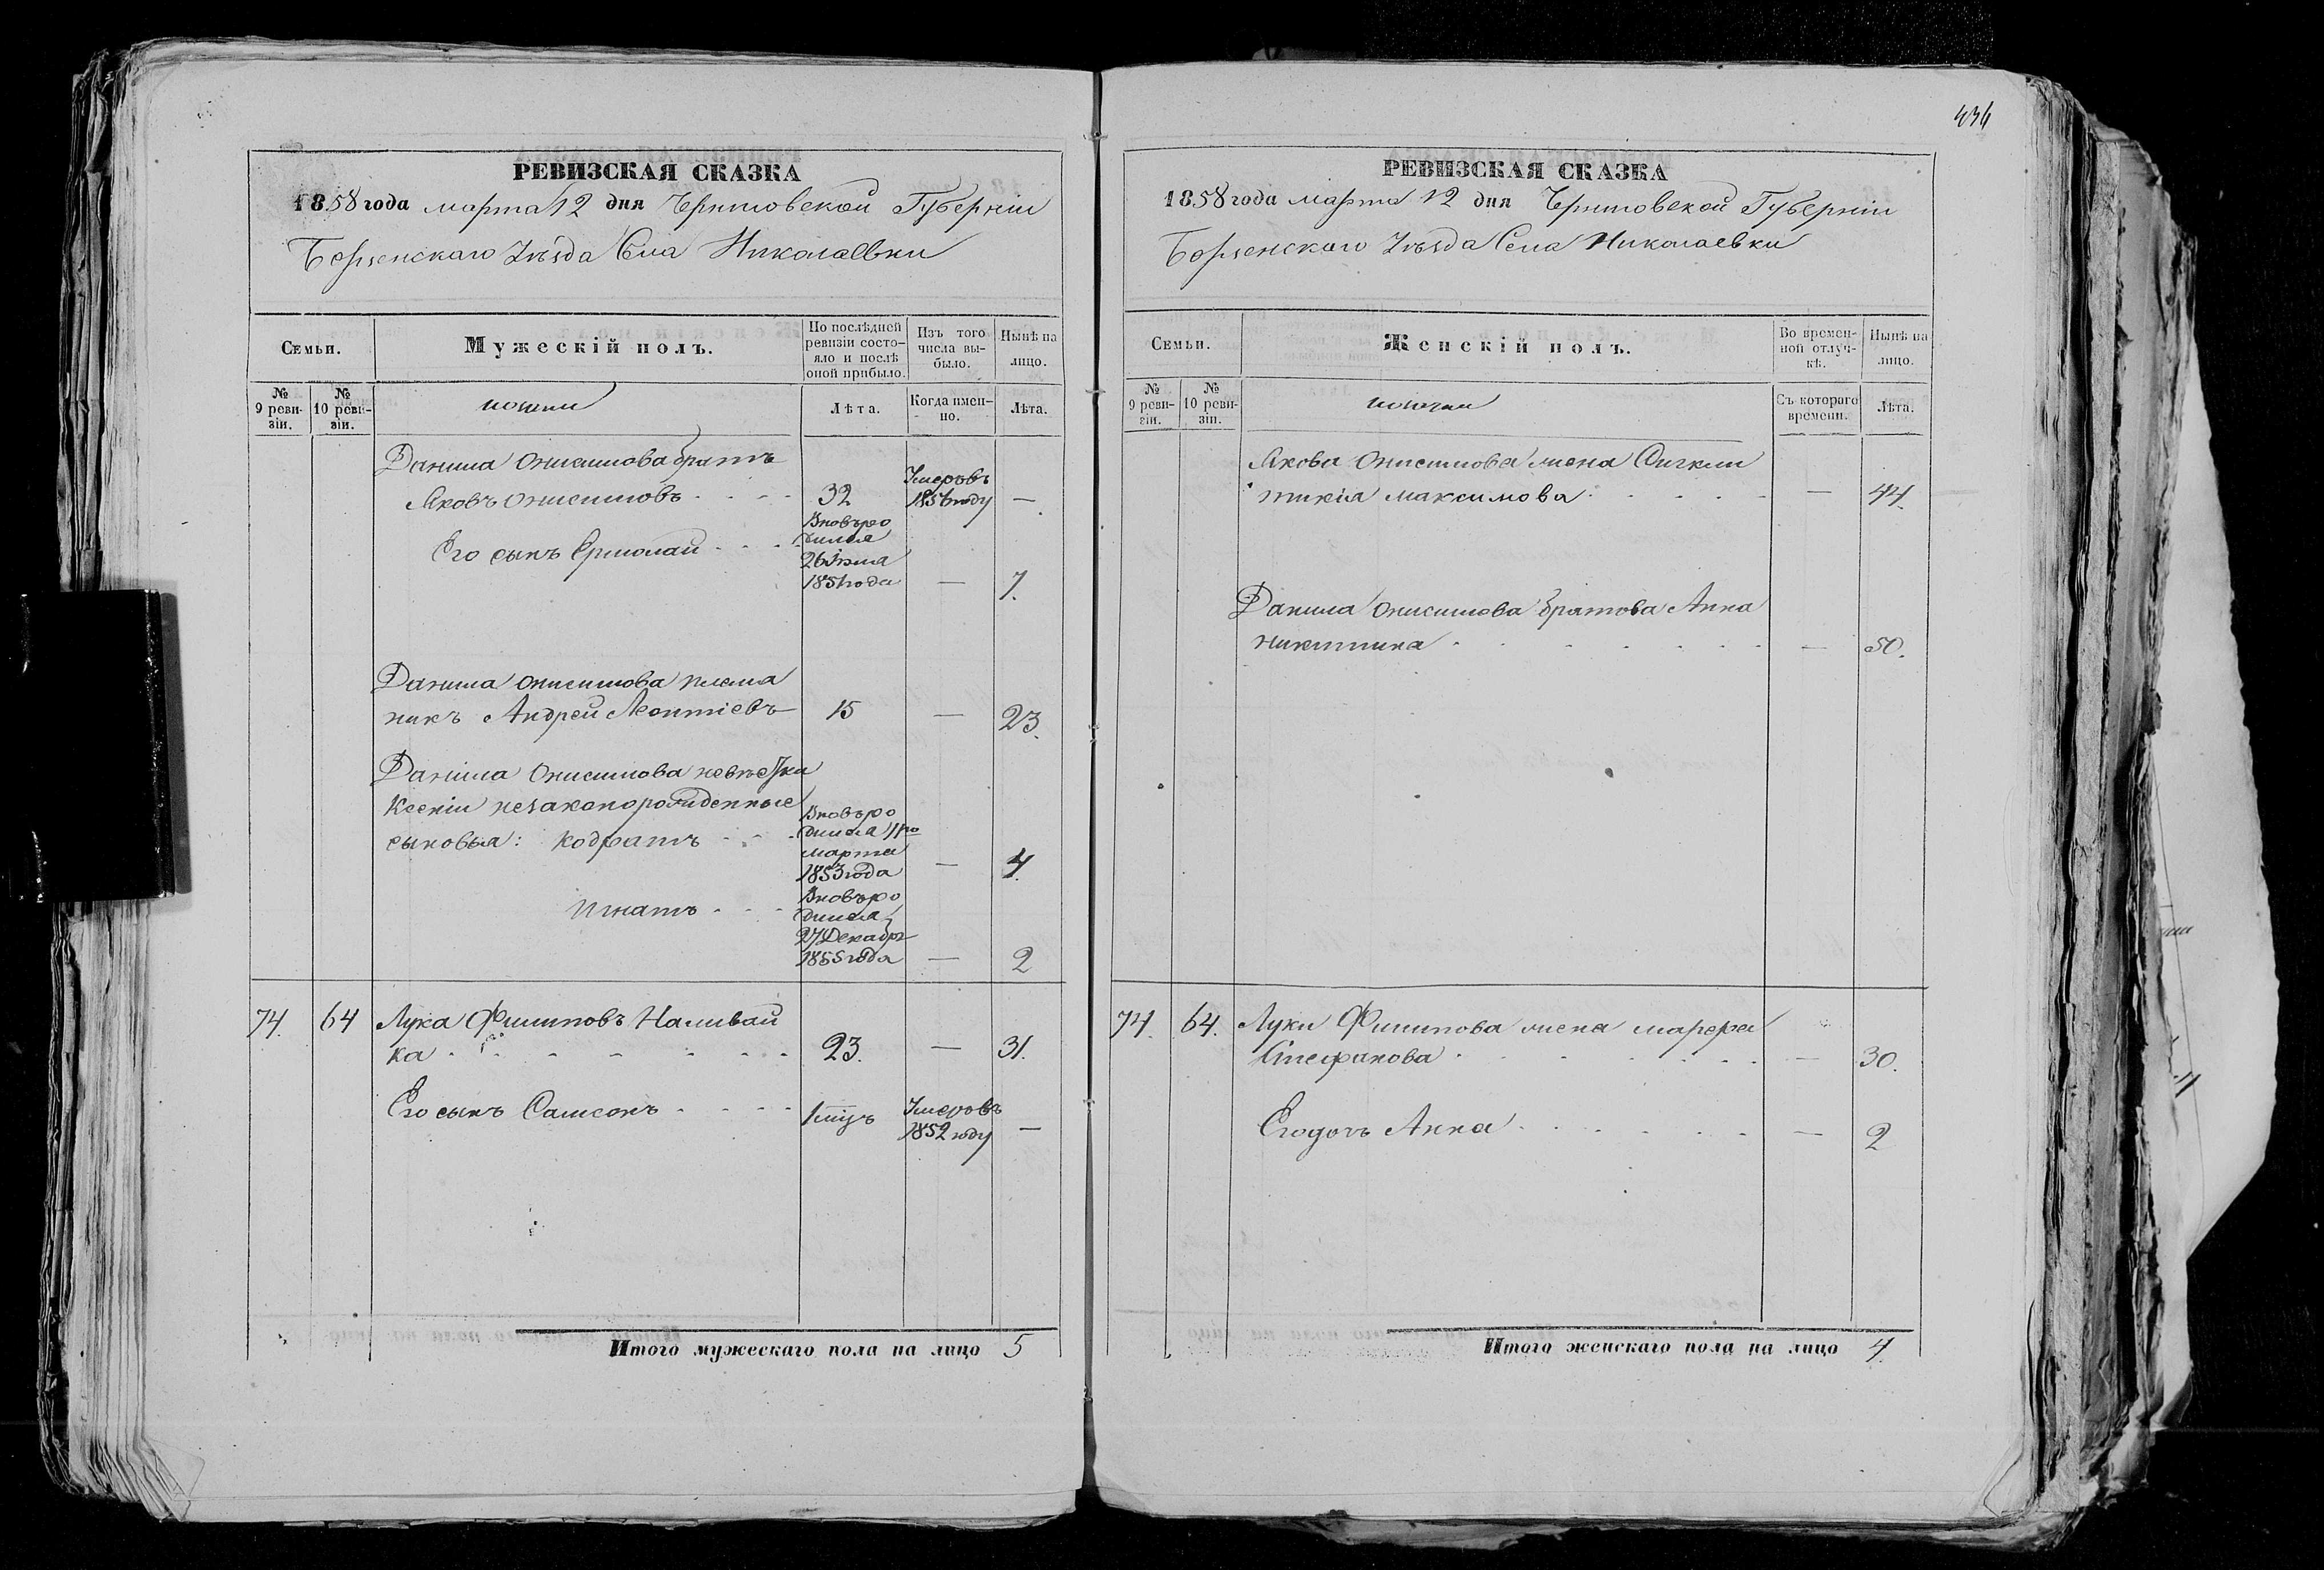 РЕВИЗСКАЯ СКАЗКА
1858 года марта 12 дня Чрниговской Губерніи
Борзенскаго Уѣзда Села Николаевки
Семьи.
Мужескій полъ.
По послѣдней ревизіи состояло и послѣ оной прибыло.
Изъ того числа выбыло.
Нынѣ на лицо.
№ 9 ревизіи.
№ 10 ревизіи.
Лѣта.
Когда именно.
Лѣта.
Данила Онисимова братъ
Яковъ Онисимовъ 32 Умеръ въ 1856 году —
Его сынъ Ермолай Вновь родился 26 Іюля 1851 года — 7.
Данила Онисимова племя
никъ Андрей Леонтіевъ 15 — 23.
Данила Онисимова невѣстки
Ксеніи незаконорожденные
сыновья: Кодратъ Вновь родился 11го марта 1853 года — 4.
Игнатъ Вновь родился 27 Декабр 1855 года — 2
74. 64 Лука Филиповъ Наливай
ка 23. — 31.
Его сынъ Самсонъ 1 мцъ Умеръ въ 1852 году —
Итого мужескаго пола на лицо 5
436
РЕВИЗСКАЯ СКАЗКА
1858 года марта 12 дня Чрниговской Губерніи
Борзенскаго Уѣзда Села Николаевки
Семьи.
Женскій полъ.
Во временной отлучкѣ.
Нынѣ на лицо.
№ 9 ревизіи.
№ 10 ревизіи.
Съ котораго времени.
Лѣта.
Якова Онисимова жена
тикія Максимова — 44.
Данила Онисимова братова Анна
Никитина — 50.
74. 64. Луки Филипова жена Марфа
Стефанова — 30.
Его дочь Анна — 2
Итого женскаго пола на лицо 4.